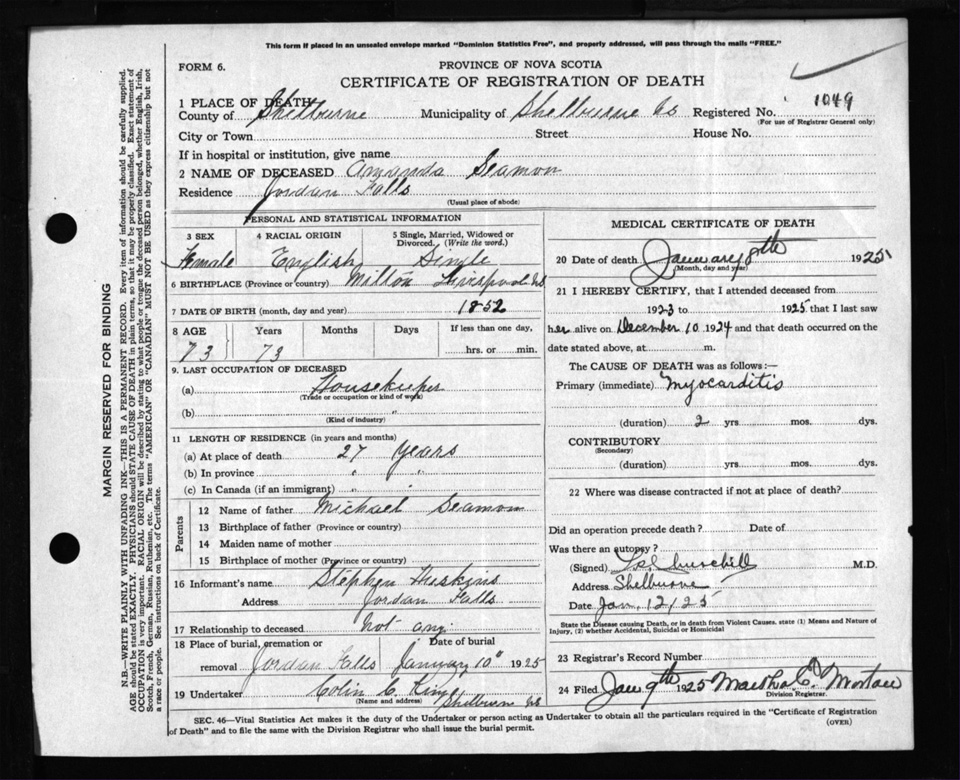 This form if placed in an unsealed envelope marked "Dominion Statistics Free", and properly addressed, will pass through the mails "FREE."
FORM 6.
PROVINCE OF NOVA SCOTIA
CERTIFICATE OF REGISTRATION OF DEATH
1 PLACE OF DEATH
County of Shelburne Municipality of Shelburne Registered No. 1049
(For use of Registrar General only)
City or Town Street House No.
If in hospital or institution, give name
2 NAME OF DECEASED Amanda Seamon
Residence Jordan Falls
(Usual place of abode)
PERSONAL AND STATISTICAL INFORMATION
3 SEX 4 RACIAL ORIGIN 5 Single, Married, Widowed or Divorced. (Write the word.)
Female English Single
6 BIRTHPLACE (Province or country) Milton Liverpool NS
7 DATE OF BIRTH (month, day and year) 1852
8 AGE Years Months Days If less than one day.
73 73 hrs. or min.
9. LAST OCCUPATION OF DECEASED
(a) Housekeeper
(Trade or occupation or kind of work)
(b) "
(Kind of industry)
11 LENGTH OF RESIDENCE (in years and months)
(a) At place of death 27 years
(b) In province " "
(c) In Canada (if an immigrant) " "
Parents
12 Name of father Michael Seamon
13 Birthplace of father (Province or country)
14 Maiden name of mother
15 Birthplace of mother (Province or country)
16 Informant's name Stephen Huskins
Address Jordan Falls
17 Relationship to deceased not any
18 Place of burial, cremation or removal Jordan Falls Date of burial January 10" 1925
19 Undertaker Colin C. King
(Name and address) Shelburn NS
MEDICAL CERTIFICATE OF DEATH
20 Date of death January 8th 1925
(Month, day and year)
21 I HEREBY CERTIFY, that I attended deceased from
1923 to 1925 that I last saw
her alive on December 10 1924 and that death occurred on the
date stated above, at m.
The CAUSE OF DEATH was as follows:—
Primary (immediate) Myocarditis
(duration) 2 yrs. mos. dys.
CONTRIBUTORY
(Secondary)
(duration) yrs. mos. dys.
22 Where was disease contracted if not at place of death?
Did an operation precede death? Date of
Was there an autopsy?
(Signed) Churchill M.D.
Address Shelburne
Date Jan. 12/25
State the Disease causing Death, or in death from Violent Causes. state (1) Means and Nature of
Injury, (2) whether Accidental, Suicidal or Homicidal
23 Registrar's Record Number
24 Filed Jan 9th 1925 Martha E.
Division Registrar.
SEC. 46—Vital Statistics Act makes it the duty of the Undertaker or person acting as Undertaker to obtain all the particulars required in the "Certificate of Registration
of Death" and to file the same with the Division Registrar who shall issue the burial permit. (OVER)
MARGIN RESERVED FOR BINDING
N.B.—WRITE PLAINLY WITH UNFADING INK—THIS IS A PERMANENT RECORD. Every item of information should be carefully supplied.
AGE should be stated EXACTLY. PHYSICIANS should STATE CAUSE OF DEATH in plain terms, so that it may be properly classified. Exact statement of
OCCUPATION is very important. RACIAL ORIGIN will be described by stating to what people or tongue the deceased person belonged, whether English, Irish,
Scotch, French, German, Russian, Ruthenian, etc. The terms "AMERICAN" OR "CANADIAN" MUST NOT BE USED as they express citizenship but not
a race or people. See instructions on back of Certificate.